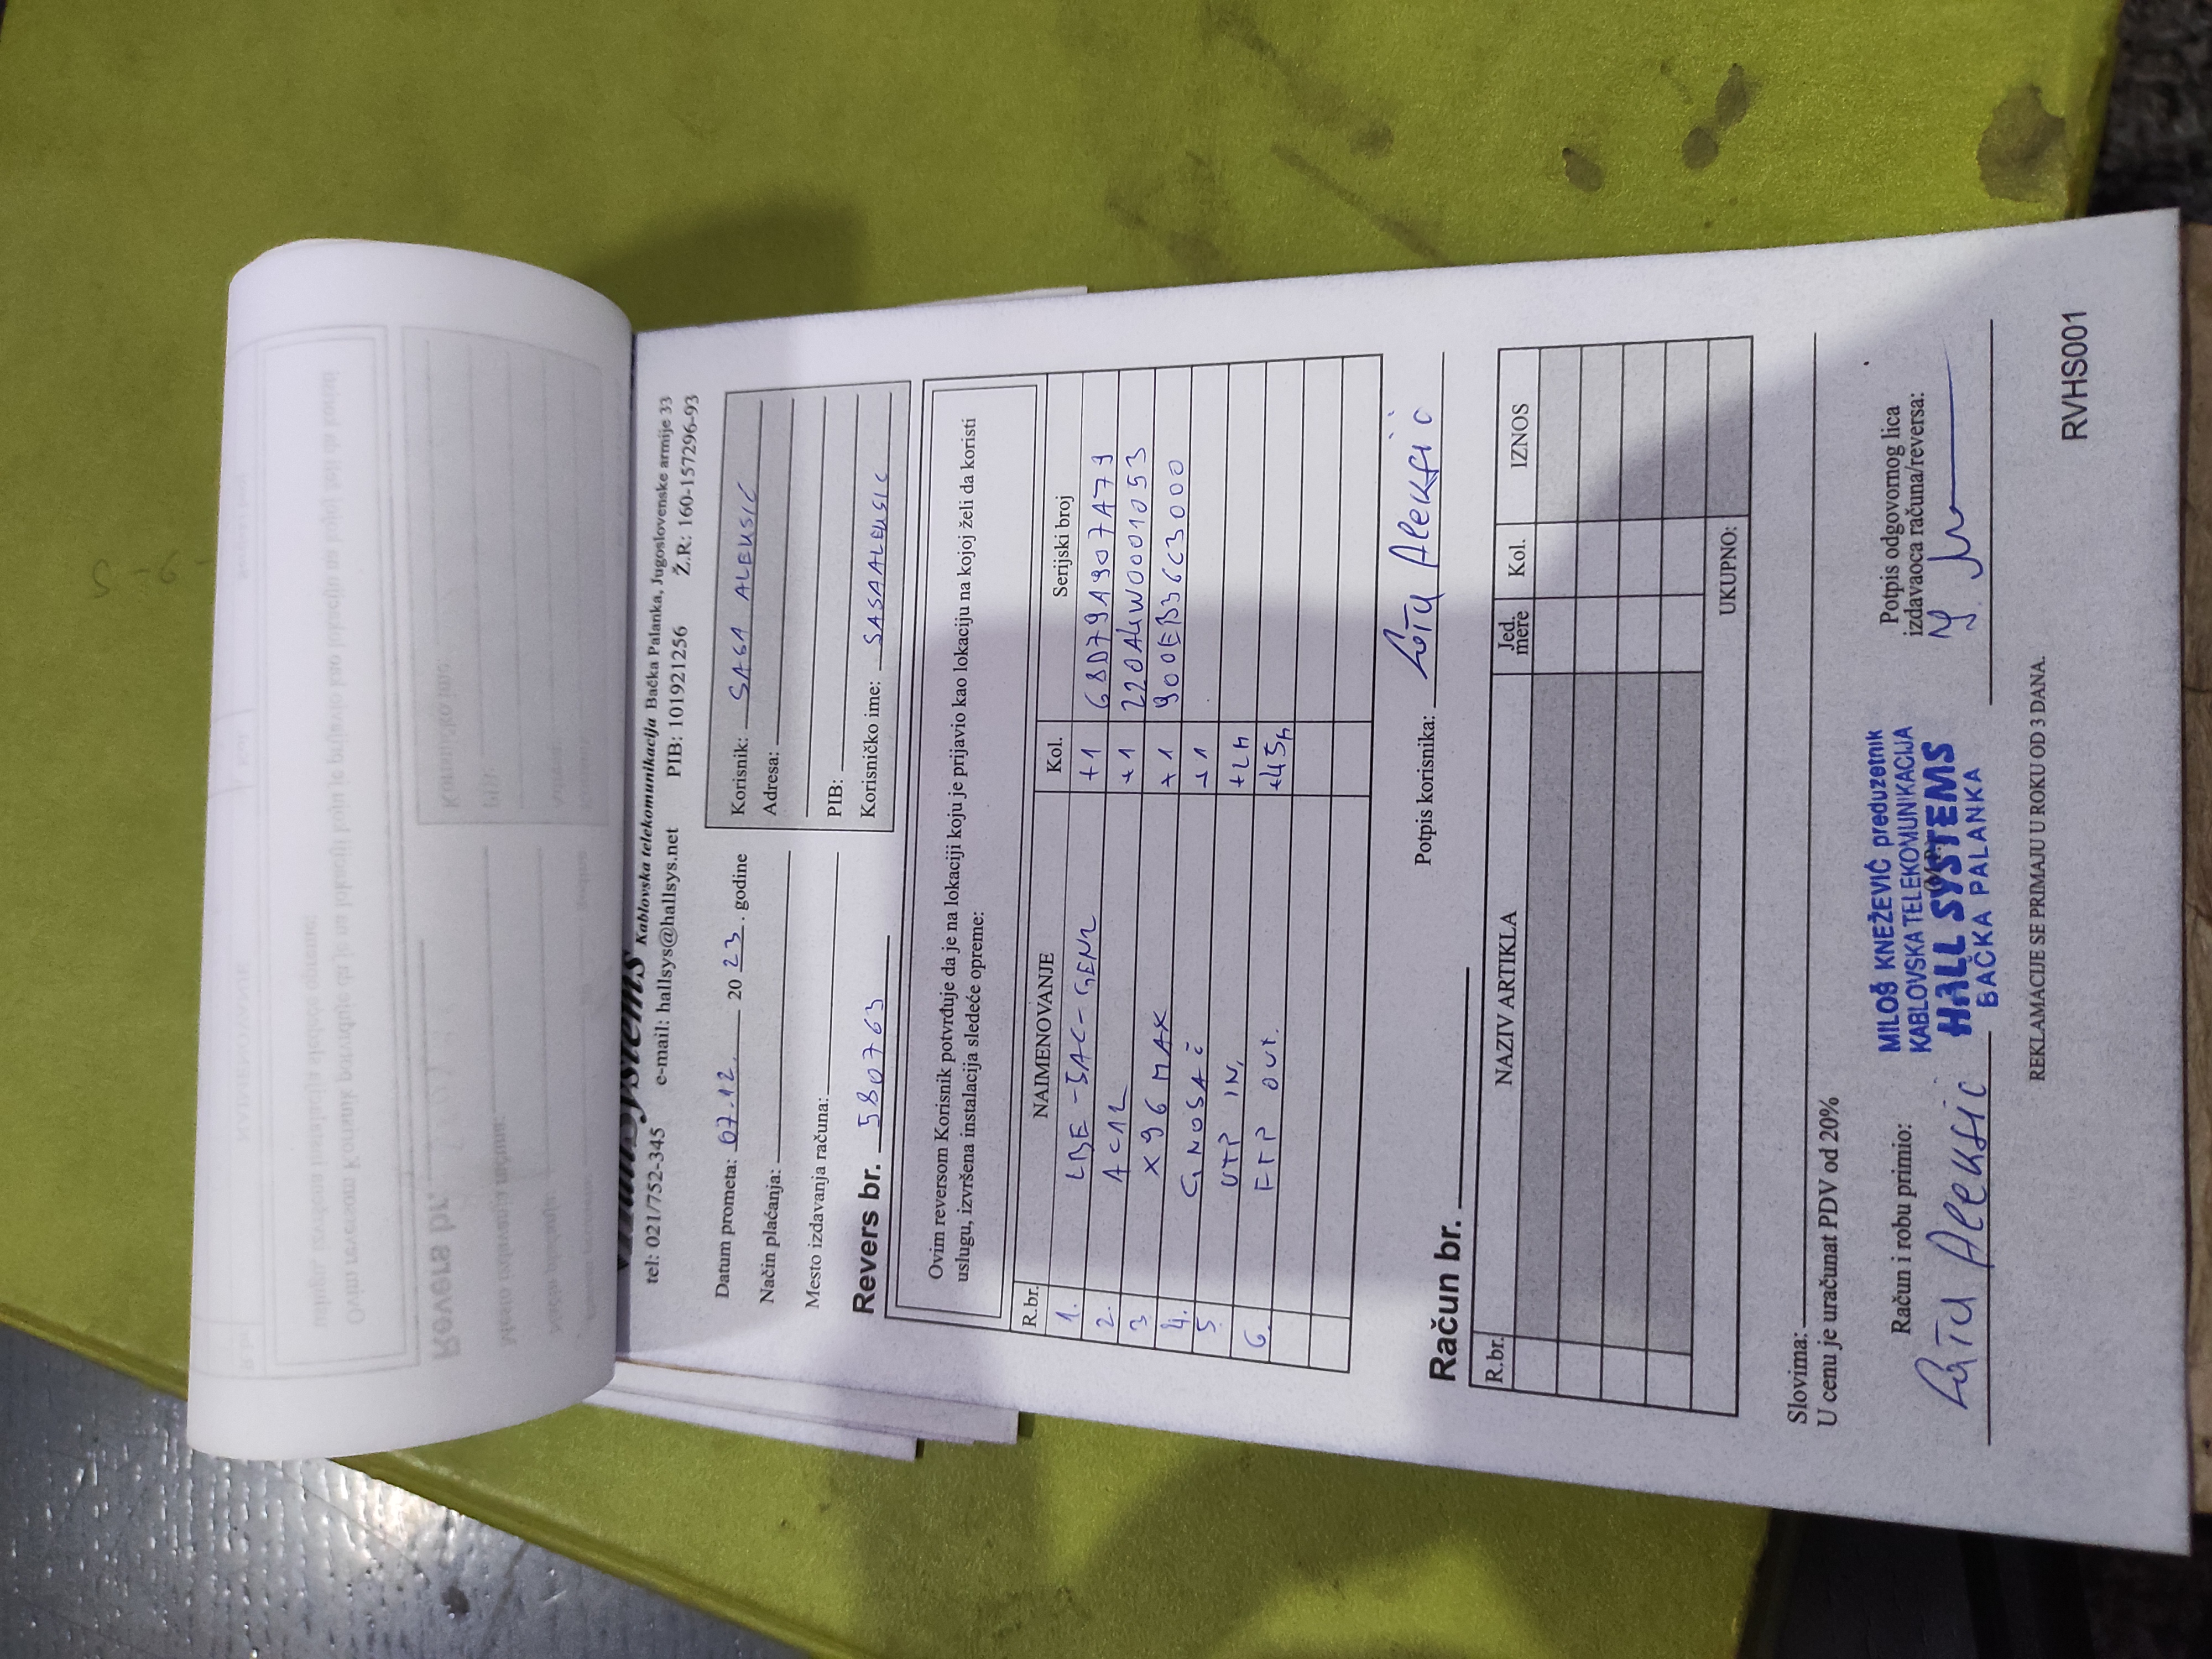 HallSystems Kablovska telekomunikacija Bačka Palanka, Jugoslovenske armije 33
tel: 021/752-345 e-mail: hallsys@hallsys.net PIB: 101921256 Ž.R: 160-157296-93
Datum prometa: 07.12. 20 23. godine
Način plaćanja:
Mesto izdavanja računa:
Korisnik: SASA ALEKSIC
Adresa:
PIB:
Korisničko ime: SASAALEKSIC
Revers br. 580763
Ovim reversom Korisnik potvrđuje da je na lokaciji koju je prijavio kao lokaciju na kojoj želi da koristi
uslugu, izvršena instalacija sledeće opreme:
R.br. NAIMENOVANJE Kol. Serijski broj
1. LBE-5AC-GEN2 +1 68D79A907A79
2. AC12 +1 220A4W0001053
3 X96 MAX +1 900EB36C30000
4. G. NOSAČ +1
5. UTP IN. +2m
6. FTP OUT. +45m
Potpis korisnika: Aleksić
Račun br.
R.br. NAZIV ARTIKLA Jed. mere Kol. IZNOS
UKUPNO:
Slovima:
U cenu je uračunat PDV od 20%
Račun i robu primio:
Aleksić
MILOŠ KNEŽEVIĆ preduzetnik
KABLOVSKA TELEKOMUNIKACIJA
HALL SYSTEMS
BAČKA PALANKA
Potpis odgovornog lica
izdavaoca računa/reversa:
REKLAMACIJE SE PRIMAJU U ROKU OD 3 DANA.
RVHS001